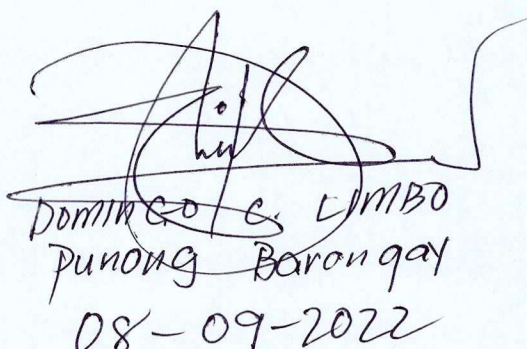 Domingo C. LIMBO
Punong Barangay
08-09-2022